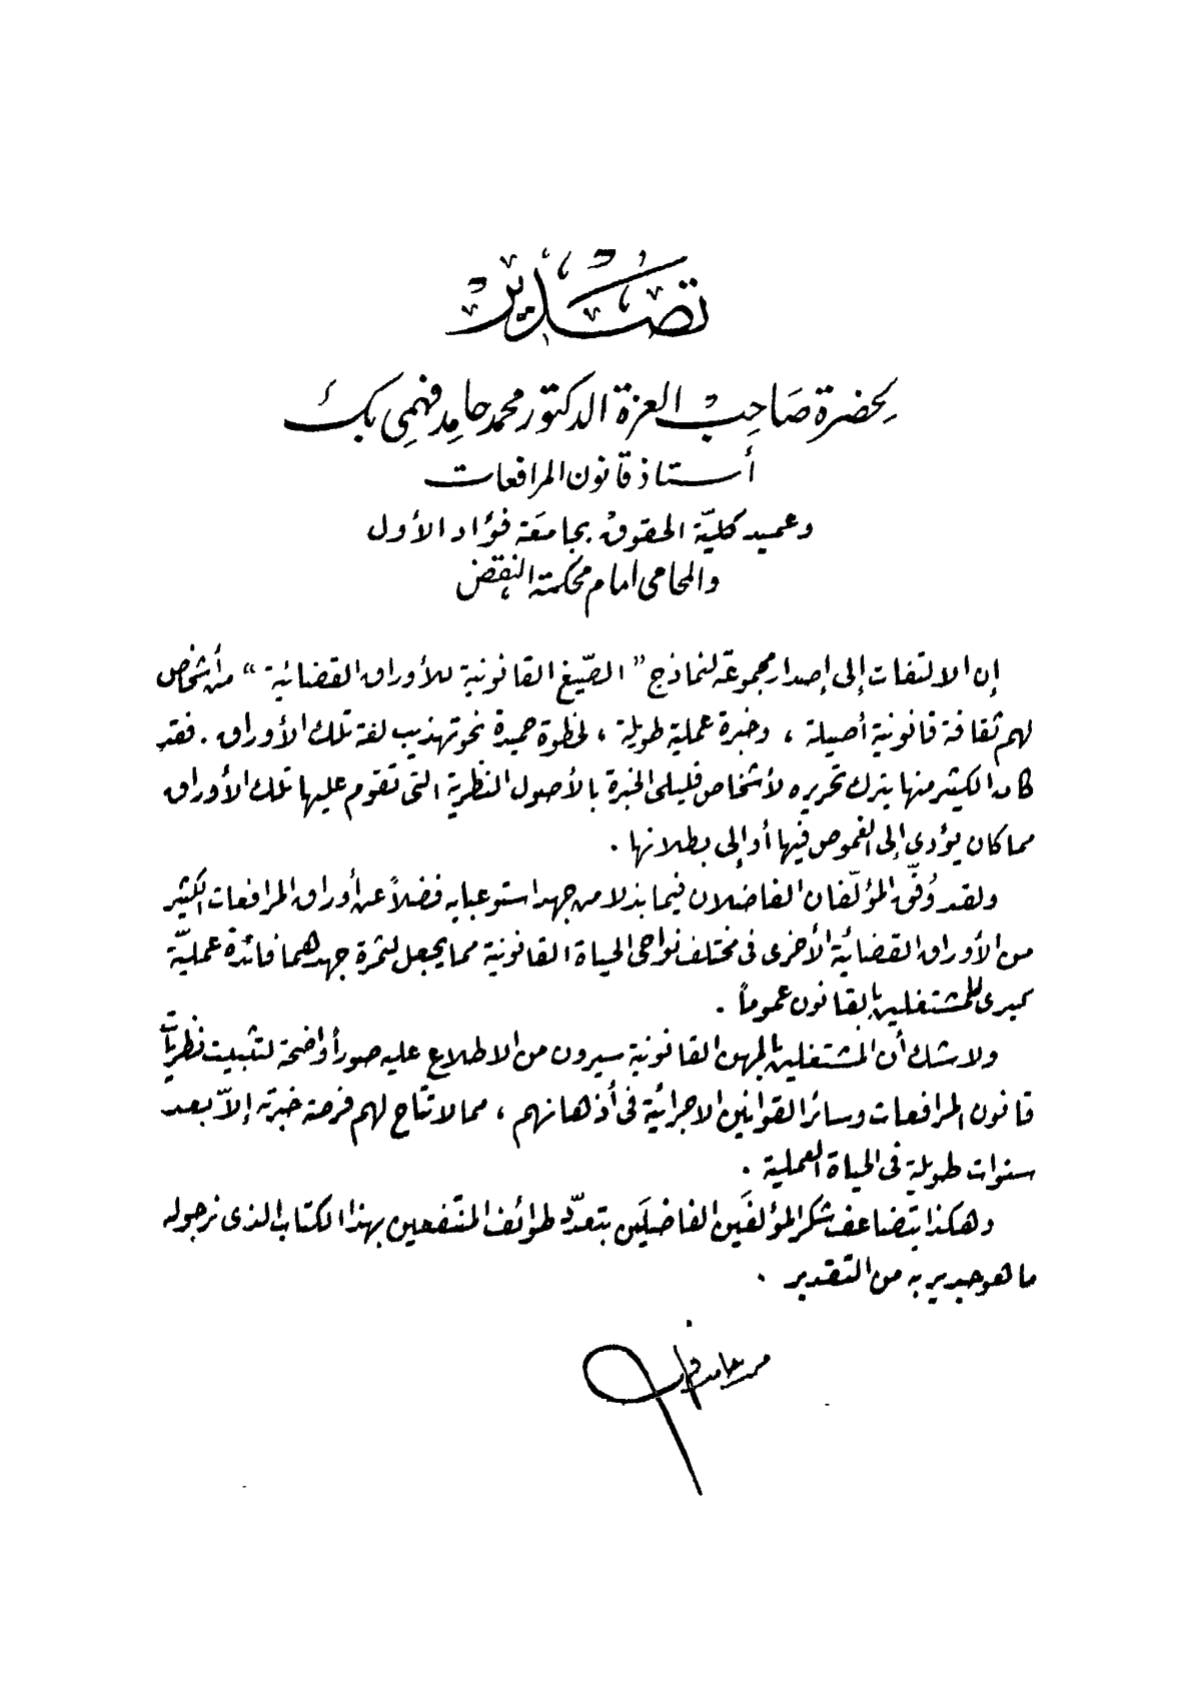 تصدير
لحضرة صاحب العزة الدكتور محمد حامد فهمى بك
أستاذ قانون المرافعات
وعميد كليّة الحقوق بجامعة فؤاد الأول
والمحامى امام محكمة النقض
إن الالتفات إلى إصدار مجموعة لنماذج " الصّيغ القانونية للأوراق القضائية " من أشخاص
لهم ثقافة قانونية أصيلة ، وخبرة عملية طويلة ، لخطوة حميدة نحو تهذيب لغة تلك الأوراق . فقد
كان الكثير منها يترك تحريره لأشخاص قليلى الخبرة بالأصول النظرية التى تقوم عليها تلك الأوراق
مما كان يؤدى إلى الغموض فيها أو إلى بطلانها .
ولقد وُفّق المؤلّفان الفاضلان فيما بذلا من جهد استوعبا به فضلاً عن أوراق المرافعات الكثير
من الأوراق القضائية الأخرى فى مختلف نواحى الحياة القانونية مما يجعل لثمرة جهدهما فائدة عمليّة
كبرى للمشتغلين بالقانون عموماً .
ولا شك أن المشتغلين بالمهن القانونية سيرون من الاطلاع عليه صوراً واضحة لتثبيت نظريّات
قانون المرافعات وسائر القوانين الاجرائية فى أذهانهم ، مما لا تتاح لهم فرصة خبرته إلاّ بعد
سنوات طويلة فى الحياة العملية .
وهكذا يتضاعف شكر المؤلفَين الفاضلَين بتعدّد طوائف المنتفعين بهذا الكتاب الذى نرجو له
ما هو جدير به من التقدير .
محمد حامد فهمى